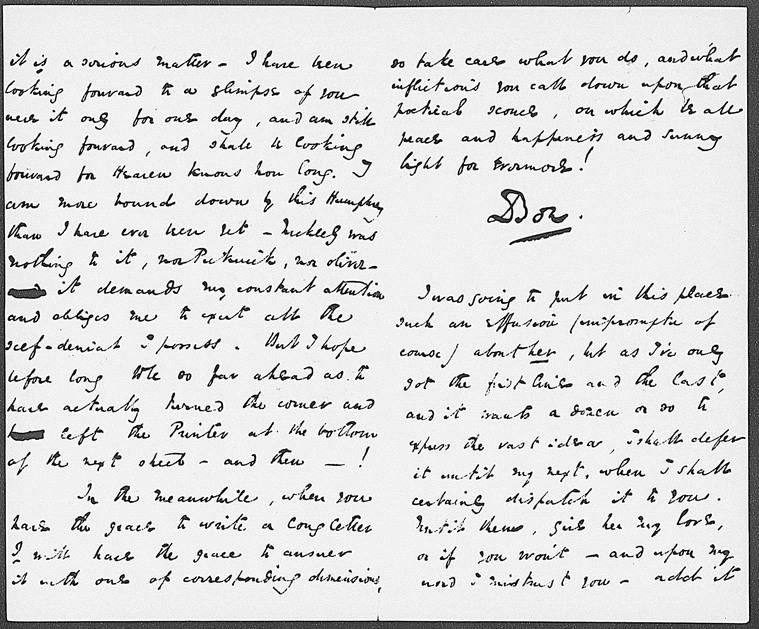 it is a serious matter - I have been
looking forward to a glimpse of you
were it only for one day, and am still
looking forward, and shall be looking
forward for Heaven knows how long. I
am more bound down by this Humphrey
than I have ever been yet - Nickleby was
nothing to it, nor Pickwick, nor Oliver -
it demands my constant attention
and obliges me to exert all the
self-denial I possess. But I hope
before long to be so far ahead as to
have actually turned the corner and
left the Printer at the bottom
of the next sheet - and then - !
In the meanwhile, when you
have the grace to write a long letter
I will have the grace to answer
it with one of corresponding dimensions,
so take care what you do, and what
inflictions you call down upon that
poetical sconce, on which be all
peace and happiness and sunny
light for evermore!
Boz.
I was going to put in this place
such an effusion (impromptu of
course) about her, but as I've only
got the first line and the last,
and it wants a dozen or so to
express the vast idea, I shall defer
it until my next, when I shall
certainly dispatch it to you.
Until then, give her my love,
or if you won't - and upon my
word I mistrust you - add it